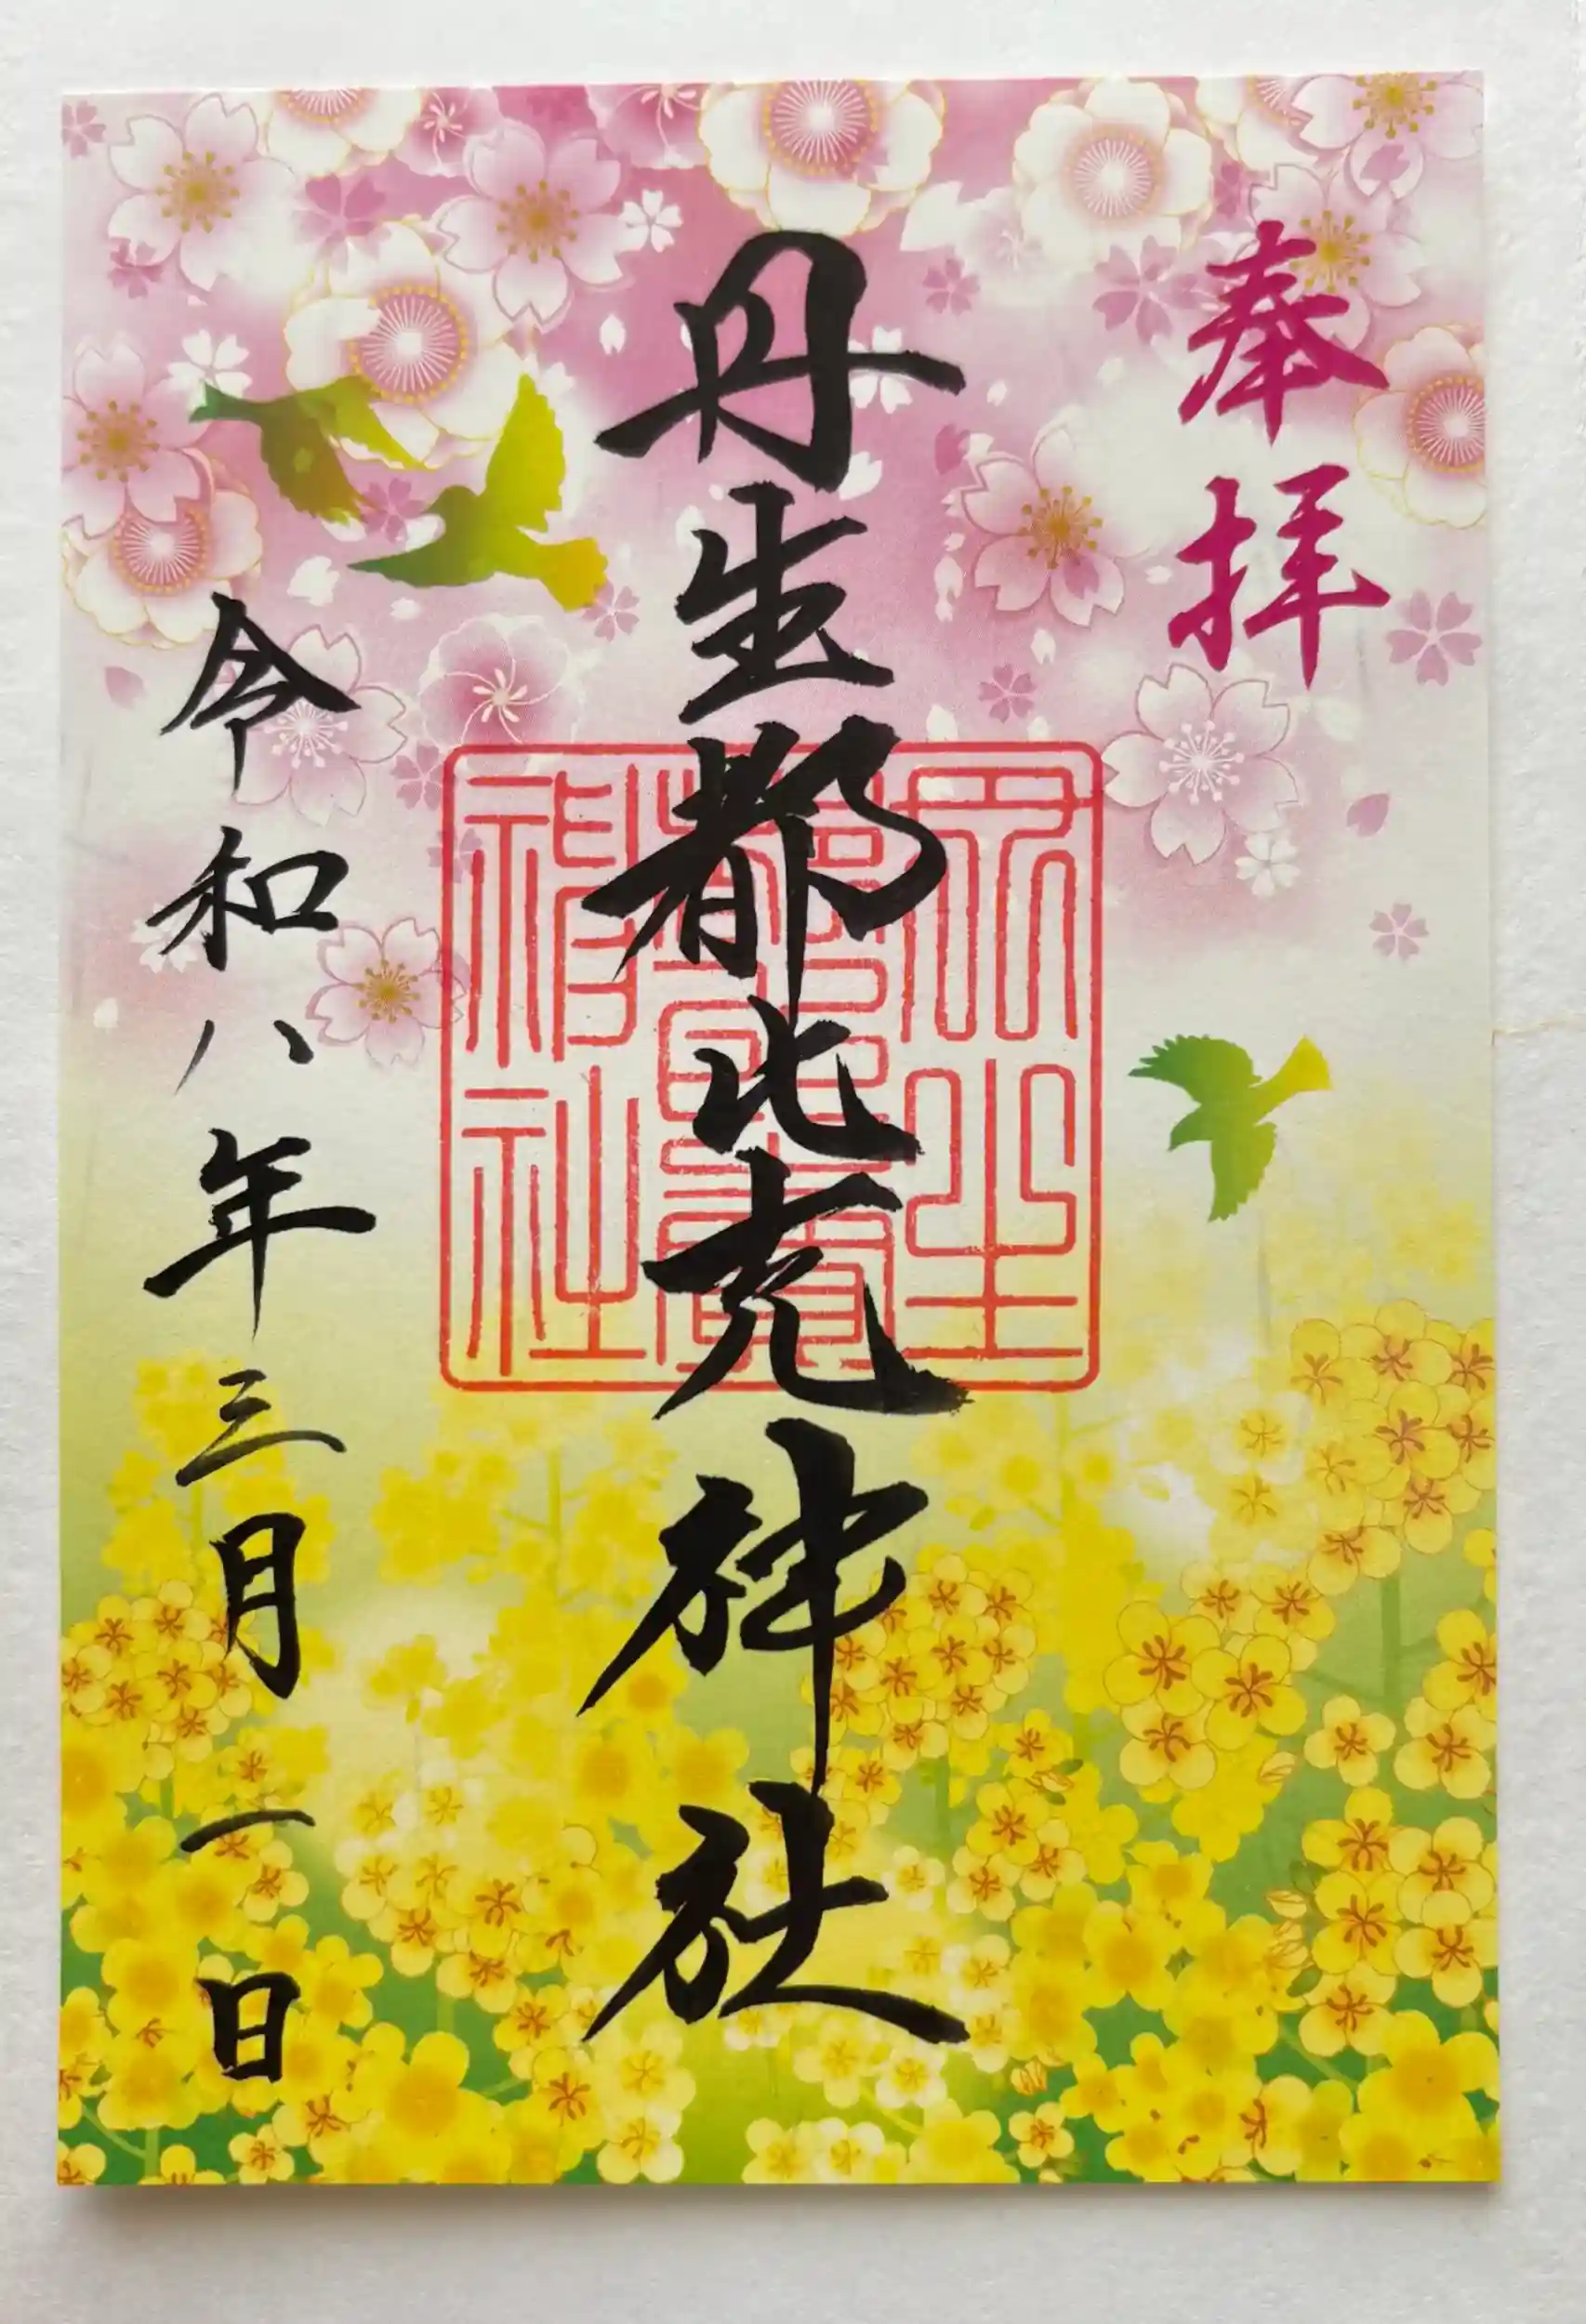 奉拝
丹生都比売神社
丹生
都比賣
神社
令和八年三月一日